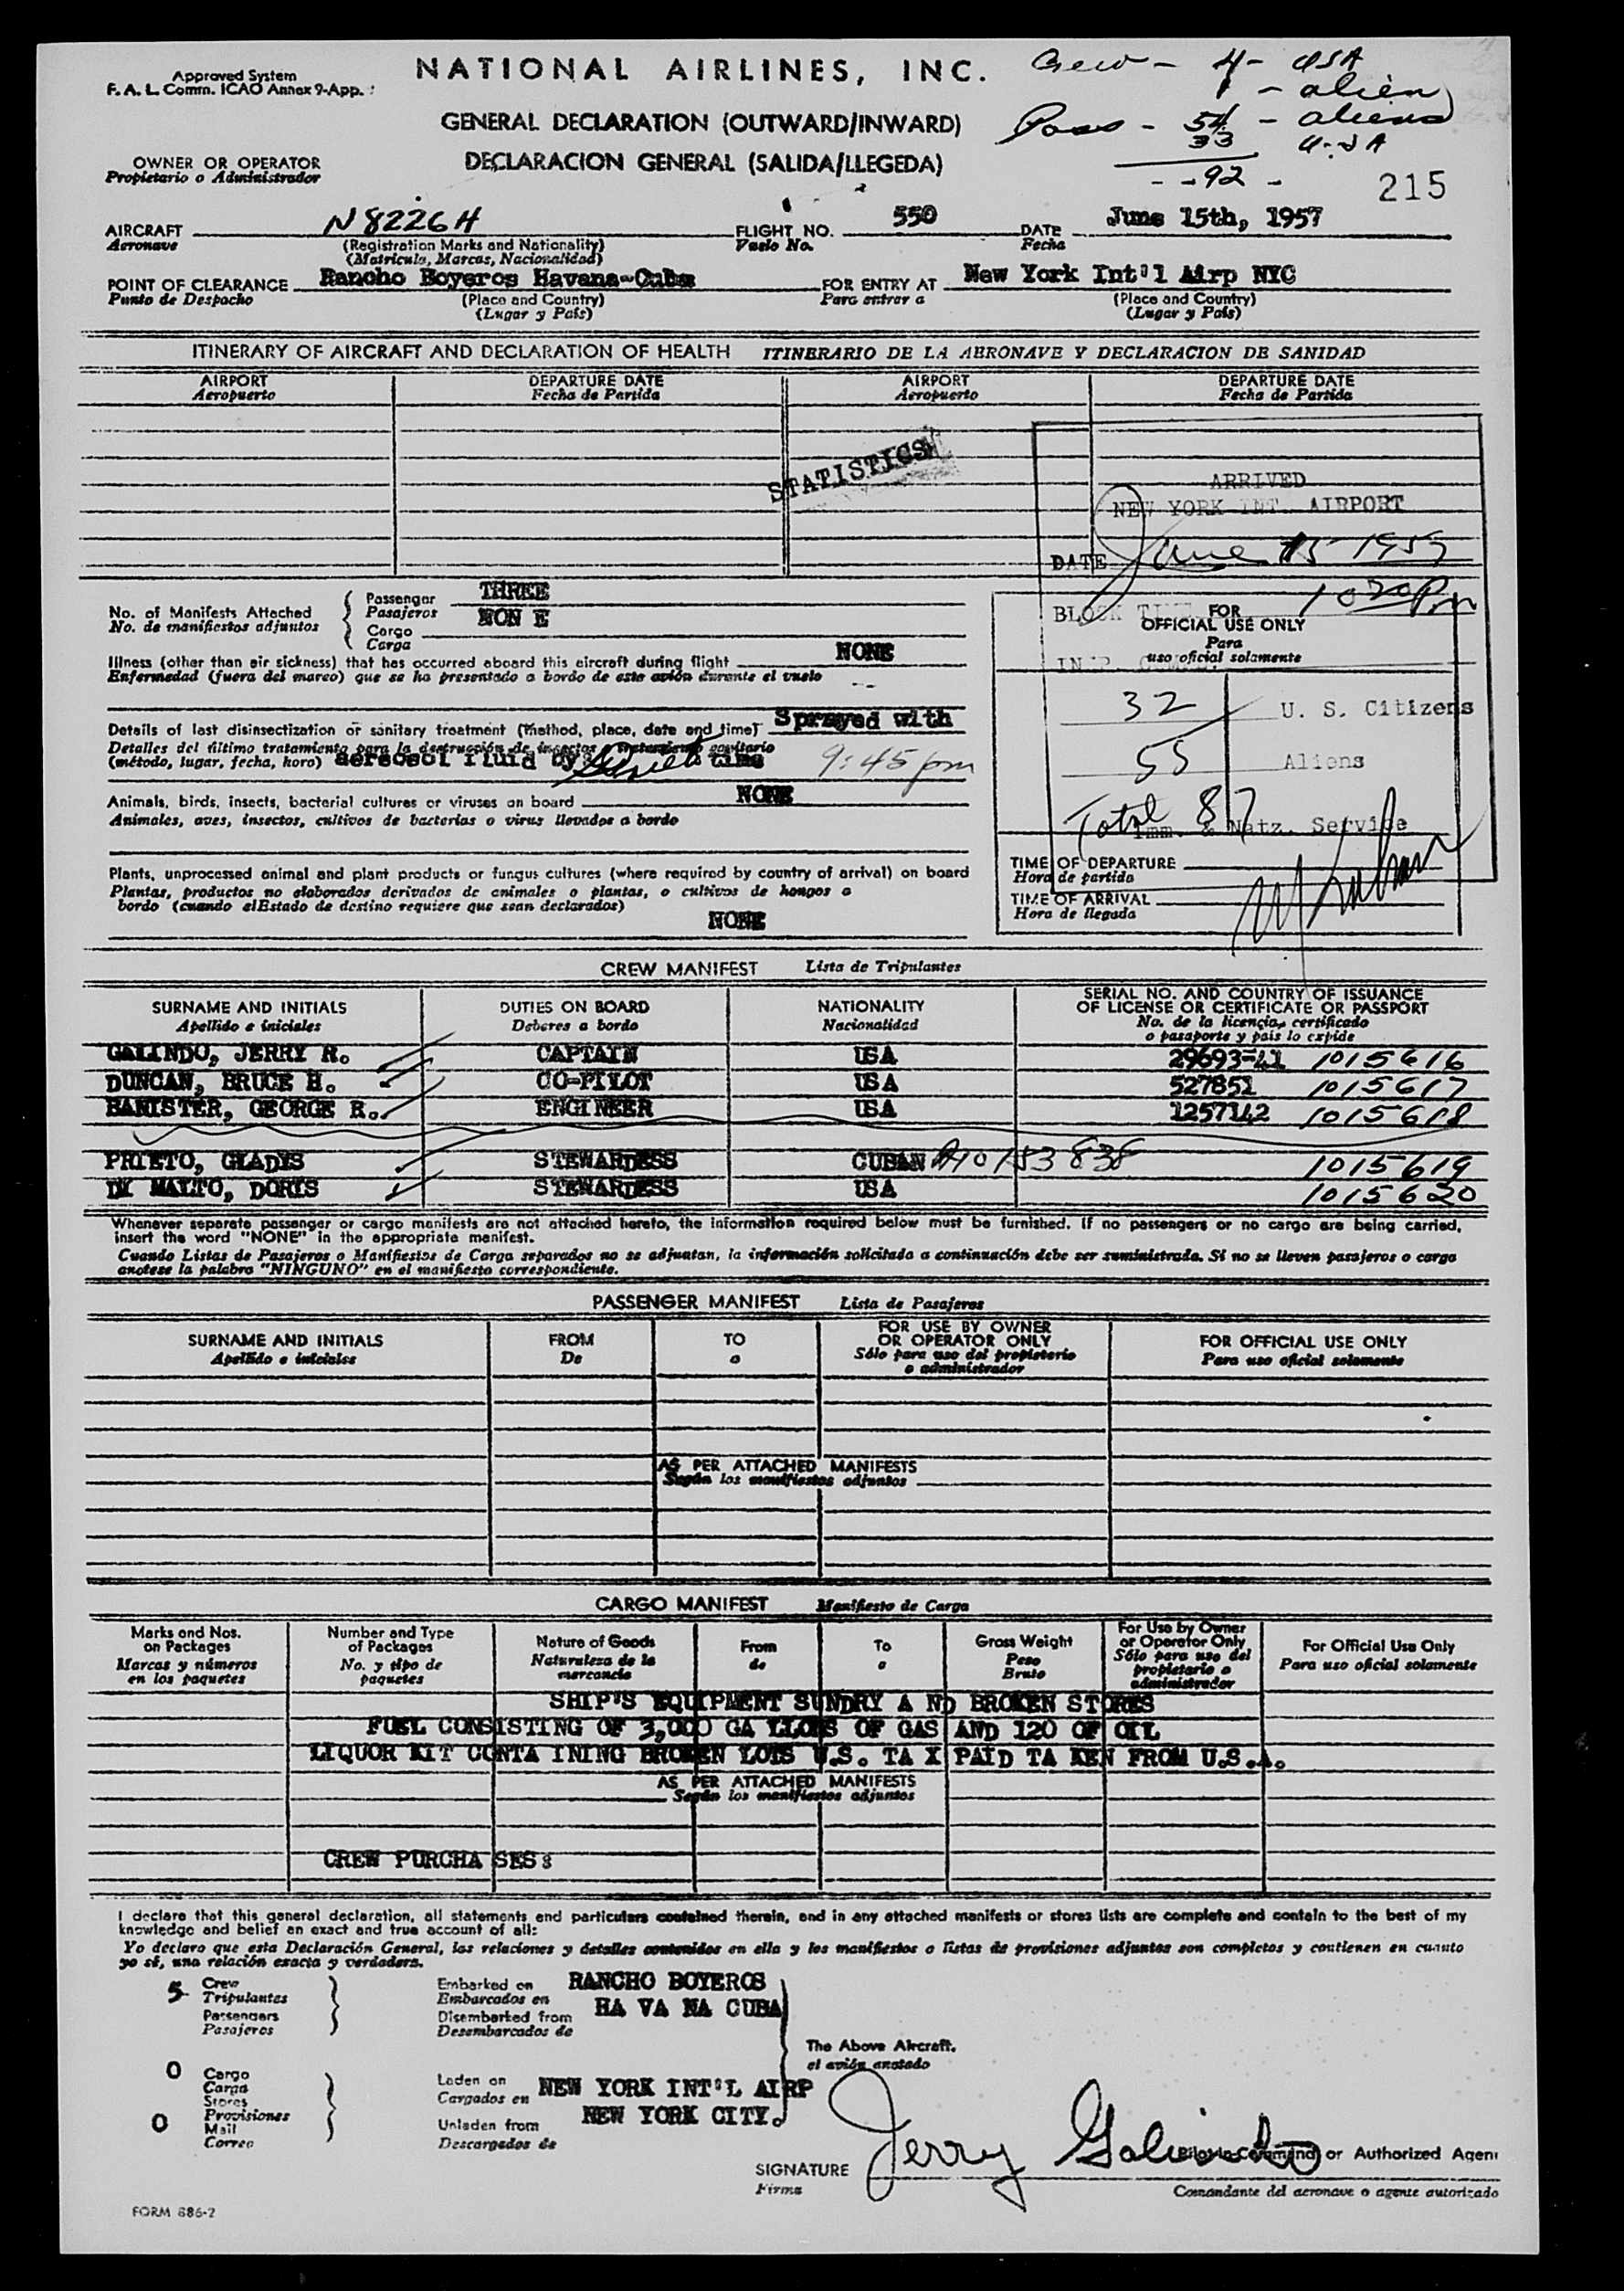 Approved System
F. A. L. Comm. ICAO Annex 9-App.
NATIONAL AIRLINES, INC.
Crew - 4 - USA
1 - alien
GENERAL DECLARATION (OUTWARD/INWARD)
Pass - 54 - aliens
33 USA
DECLARACION GENERAL (SALIDA/LLEGEDA)
- - 92 -
OWNER OR OPERATOR
Propietario o Administrador
215
AIRCRAFT N8226H FLIGHT NO. 550 DATE June 15th, 1957
Aeronave (Registration Marks and Nationality) Vuelo No. Fecha
(Matricula, Marcas, Nacionalidad)
POINT OF CLEARANCE Rancho Boyeros Havana-Cuba FOR ENTRY AT New York Int'l Airp NYC
Punto de Despacho (Place and Country) Para entrar a (Place and Country)
(Lugar y País) (Lugar y País)
ITINERARY OF AIRCRAFT AND DECLARATION OF HEALTH ITINERARIO DE LA AERONAVE Y DECLARACION DE SANIDAD
AIRPORT DEPARTURE DATE AIRPORT DEPARTURE DATE
Aeropuerto Fecha de Partida Aeropuerto Fecha de Partida
STATISTICS
ARRIVED
NEW YORK INT. AIRPORT
DATE June 15 1957
BLOCK TIME 1020 Pm
No. of Manifests Attached Passenger THREE
No. de manifiestos adjuntos Pasajeros NON E
Cargo
Carga
FOR
OFFICIAL USE ONLY
Para
uso oficial solamente
Illness (other than air sickness) that has occurred aboard this aircraft during flight NONE
Enfermedad (fuera del mareo) que se ha presentado a bordo de este avión durante el vuelo
32 U. S. Citizens
55 Aliens
Total 87
Imm. & Natz. Service
Details of last disinsectization or sanitary treatment (method, place, date and time) Sprayed with
Detalles del último tratamiento para la destrucción de insectos o tratamiento sanitario
(método, lugar, fecha, hora) aerosol fluid by: Prieto time 9:45 pm
Animals, birds, insects, bacterial cultures or viruses on board NONE
Animales, aves, insectos, cultivos de bacterias o virus llevados a bordo
Plants, unprocessed animal and plant products or fungus cultures (where required by country of arrival) on board
Plantas, productos no elaborados derivados de animales o plantas, o cultivos de hongos a
bordo (cuando elEstado de destino requiere que sean declarados)
NONE
TIME OF DEPARTURE
Hora de partida
TIME OF ARRIVAL
Hora de llegada
CREW MANIFEST Lista de Tripulantes
SURNAME AND INITIALS DUTIES ON BOARD NATIONALITY SERIAL NO. AND COUNTRY OF ISSUANCE
OF LICENSE OR CERTIFICATE OR PASSPORT
Apellido e iniciales Deberes a bordo Nacionalidad No. de la licencia, certificado
o pasaporte y país lo expide
GALINDO, JERRY R. CAPTAIN USA 29693-41 1015616
DUNCAN, BRUCE H. CO-PILOT USA 527851 1015617
BANISTER, GEORGE R. ENGINEER USA 1257142 1015618
PRIETO, GLADYS STEWARDESS CUBAN A10 153 838 1015619
DI MALTO, DORIS STEWARDESS USA 1015620
Whenever separate passenger or cargo manifests are not attached hereto, the information required below must be furnished. If no passengers or no cargo are being carried,
insert the word "NONE" in the appropriate manifest.
Cuando Listas de Pasajeros o Manifiestos de Carga separados no se adjuntan, la información solicitada a continuación debe ser suministrada. Si no se lleven pasajeros o carga
anotese la palabra "NINGUNO" en el manifiesto correspondiente.
PASSENGER MANIFEST Lista de Pasajeros
SURNAME AND INITIALS FROM TO FOR USE BY OWNER
OR OPERATOR ONLY FOR OFFICIAL USE ONLY
Apellido e iniciales De a Sólo para uso del propietario
o administrador Para uso oficial solamente
AS PER ATTACHED MANIFESTS
Según los manifiestos adjuntos
CARGO MANIFEST Manifiesto de Carga
Marks and Nos.
on Packages
Marcas y números
en los paquetes
Number and Type
of Packages
No. y tipo de
paquetes
Nature of Goods
Naturaleza de la
mercancia
From
de
To
a
Gross Weight
Peso
Bruto
For Use by Owner
or Operator Only
Sólo para uso del
propietario o
administrador
For Official Use Only
Para uso oficial solamente
SHIP'S EQUIPMENT SUNDRY A ND BROKEN STORES
FUEL CONSISTING OF 3,000 GA LLONS OF GAS AND 120 OF OIL
LIQUOR KIT CONTA INING BROKEN LOTS U.S. TA X PAID TA KEN FROM U.S.A.
AS PER ATTACHED MANIFESTS
Según los manifiestos adjuntos
CREW PURCHA SES:
I declare that this general declaration, all statements and particulars contained therein, and in any attached manifests or stores lists are complete and contain to the best of my
knowledge and belief an exact and true account of all:
Yo declaro que esta Declaración General, las relaciones y detalles contenidos en ella y los manifiestos o listas de provisiones adjuntos son completos y contienen en cuanto
yo sé, una relación exacta y verdadera.
5 Crew
Tripulantes
Passengers
Pasajeros
Embarked on RANCHO BOYEROS
Embarcados en HA VA NA CUBA
Disembarked from
Desembarcados de
The Above Aircraft.
el avión anotado
0 Cargo
Carga
Stores
Provisiones
0 Mail
Correo
Laden on NEW YORK INT'L AIRP
Cargados en
Unladen from NEW YORK CITY.
Descargados de
SIGNATURE Jerry Galindo
Firma
(Pilot in Command) or Authorized Agent
Comandante del aeronave o agente autorizado
FORM 886-2